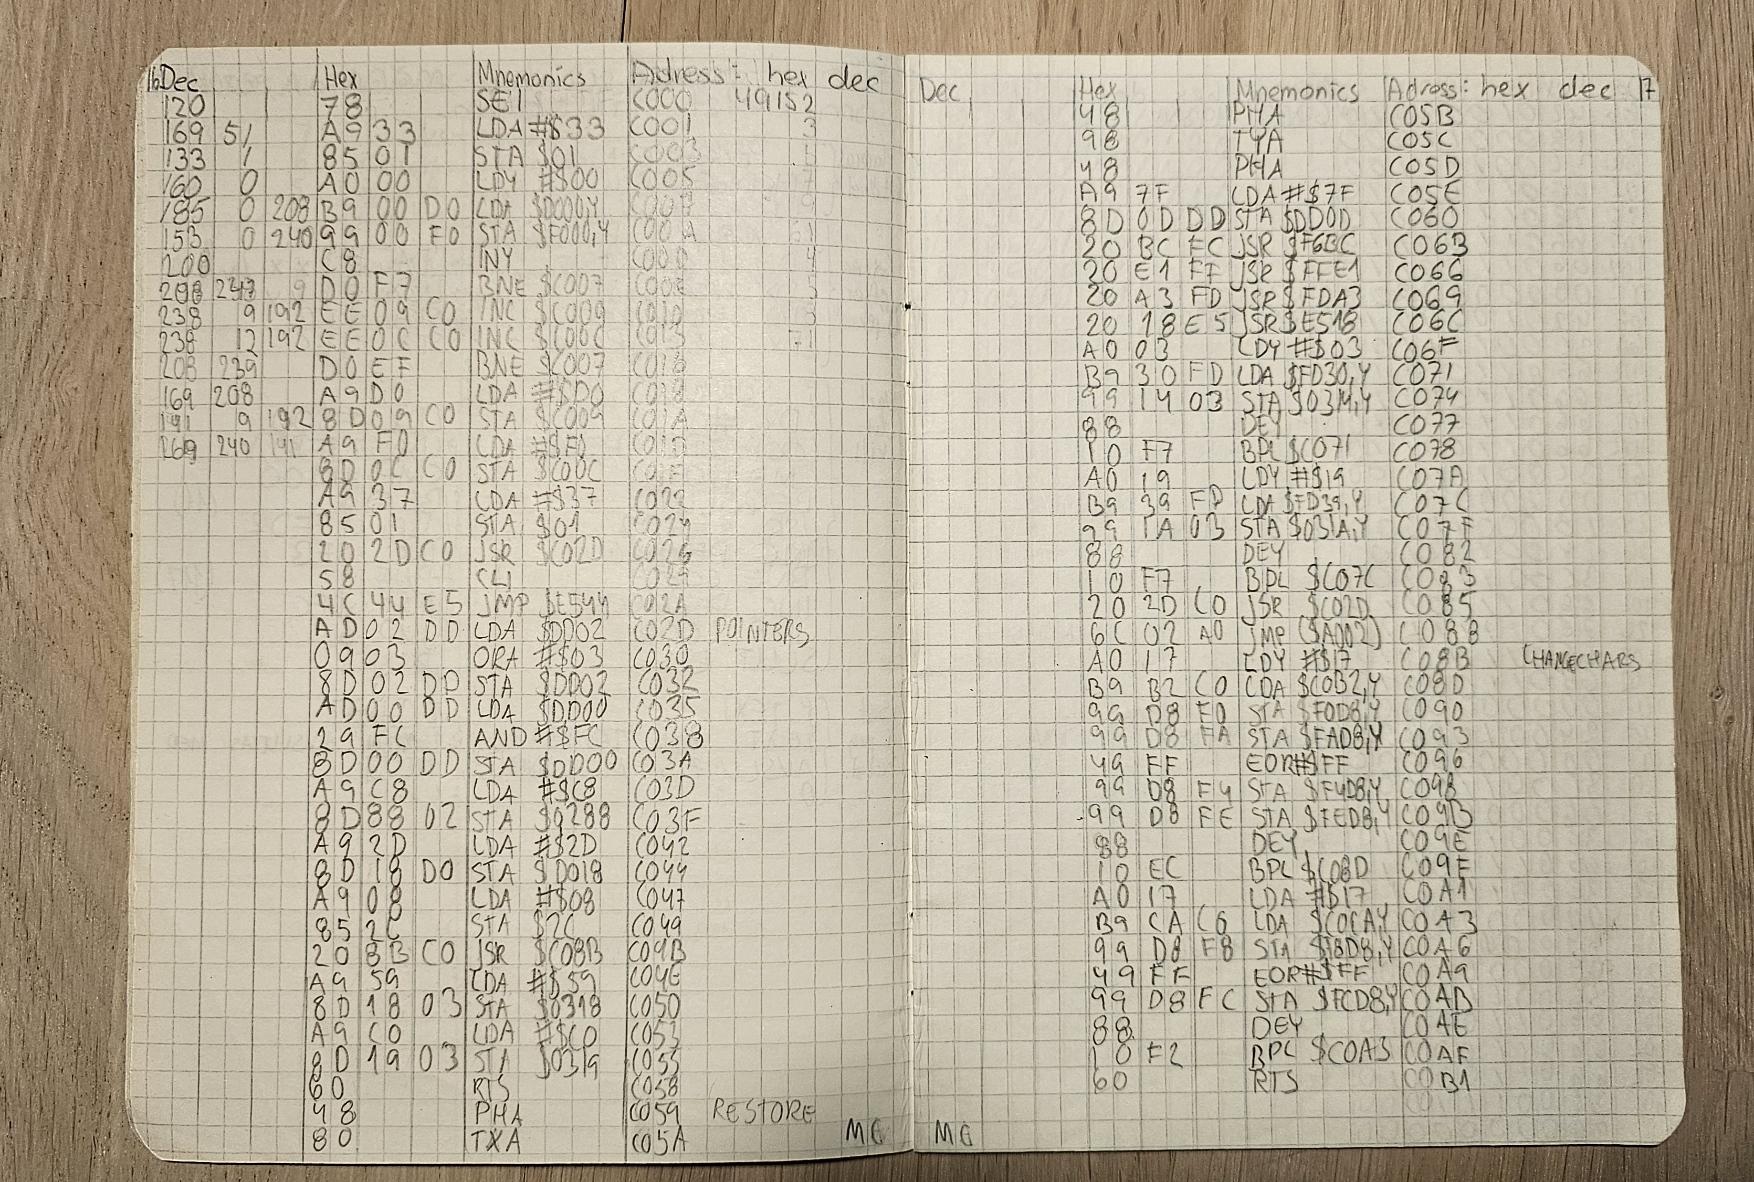 16 Dec Hex Mnemonics Adress: hex dec
120 78 SEI C000 49152
169 51 A9 33 LDA #$33 C001 3
133 1 85 01 STA $01 C003
160 0 A0 00 LDY #$00 C005 7
185 0 208 B9 00 D0 LDA $D000,Y
153 0 240 99 00 F0 STA $F000,Y C00A
200 C8 INY C00D
208 D0 F7 BNE $C007
238 9 192 EE 09 C0 INC $C009 C010 3
238 12 192 EE 0C C0 INC $C00C C013 71
208 239 D0 EF BNE $C007 C016
169 208 A9 D0 LDA #$D0 C018
141 9 192 8D 09 C0 STA $C009 C01A
269 240 141 A9 F0 LDA #$F0 C01D
8D 0C C0 STA $C00C C01F
A9 37 LDA #$37 C022
85 01 STA $01 C024
20 2D C0 JSR $C02D C026
58 CLI C029
4C 44 E5 JMP $E544 C02A
AD 02 DD LDA $DD02 C02D POINTERS
09 03 ORA #$03 C030
8D 02 DD STA $DD02 C032
AD 00 DD LDA $DD00 C035
29 FC AND #$FC C038
8D 00 DD STA $DD00 C03A
A9 C8 LDA #$C8 C03D
8D 88 02 STA $0288 C03F
A9 2D LDA #$2D C042
8D 18 D0 STA $D018 C044
A9 08 LDA #$08 C047
85 2C STA $2C C049
20 8B C0 JSR $C08B C04B
A9 59 LDA #$59 C04E
8D 18 03 STA $0318 C050
A9 C0 LDA #$C0 C053
8D 19 03 STA $0319 C055
60 RTS C058
48 PHA C059 RESTORE
80 TXA C05A MC
Dec Hex Mnemonics Adress: hex dec 17
48 PHA C05B
98 TYA C05C
48 PHA C05D
A9 7F LDA #$7F C05E
8D 0D DD STA $DD0D C060
20 BC FC JSR $F6BC C063
20 E1 FF JSR $FFE1 C066
20 A3 FD JSR $FDA3 C069
20 18 E5 JSR $E518 C06C
A0 03 LDY #$03 C06F
B9 30 FD LDA $FD30,Y C071
99 14 03 STA $0314,Y C074
88 DEY C077
10 F7 BPL $C071 C078
A0 19 LDY #$19 C07A
B9 39 FD LDA $FD39,Y C07C
99 1A 03 STA $031A,Y C07F
88 DEY C082
10 F7 BPL $C07C C083
20 2D C0 JSR $C02D C085
6C 02 A0 JMP ($A002) C088
A0 17 LDY #$17 C08B CHANGECHARS
B9 B2 C0 LDA $C0B2,Y C08D
99 D8 F0 STA $F0D8,Y C090
99 D8 FA STA $FAD8,Y C093
49 FF EOR#$FF C096
99 D8 F4 STA $F4D8,Y C098
99 D8 FE STA $FED8,Y C09B
88 DEY C09E
10 EC BPL $C08D C09F
A0 17 LDA #$17 C0A1
B9 CA C0 LDA $C0CA,Y C0A3
99 D8 F8 STA $F8D8,Y C0A6
49 FF EOR#$FF C0A9
99 D8 FC STA $FCD8,Y C0AB
88 DEY C0AE
10 F2 BPL $C0A3 C0AF
60 RTS C0B1
MC